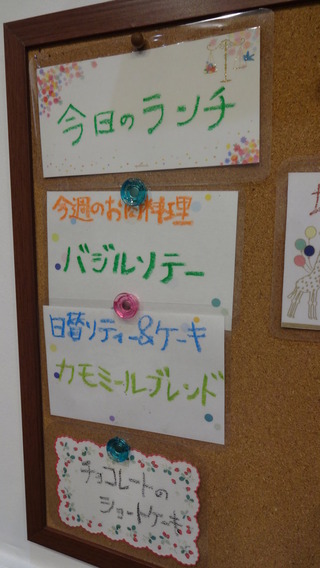 今日のランチ
今週のお肉料理
バジルソテー
日替りティー&ケーキ
カモミールブレンド
チョコレートの
ショートケーキ